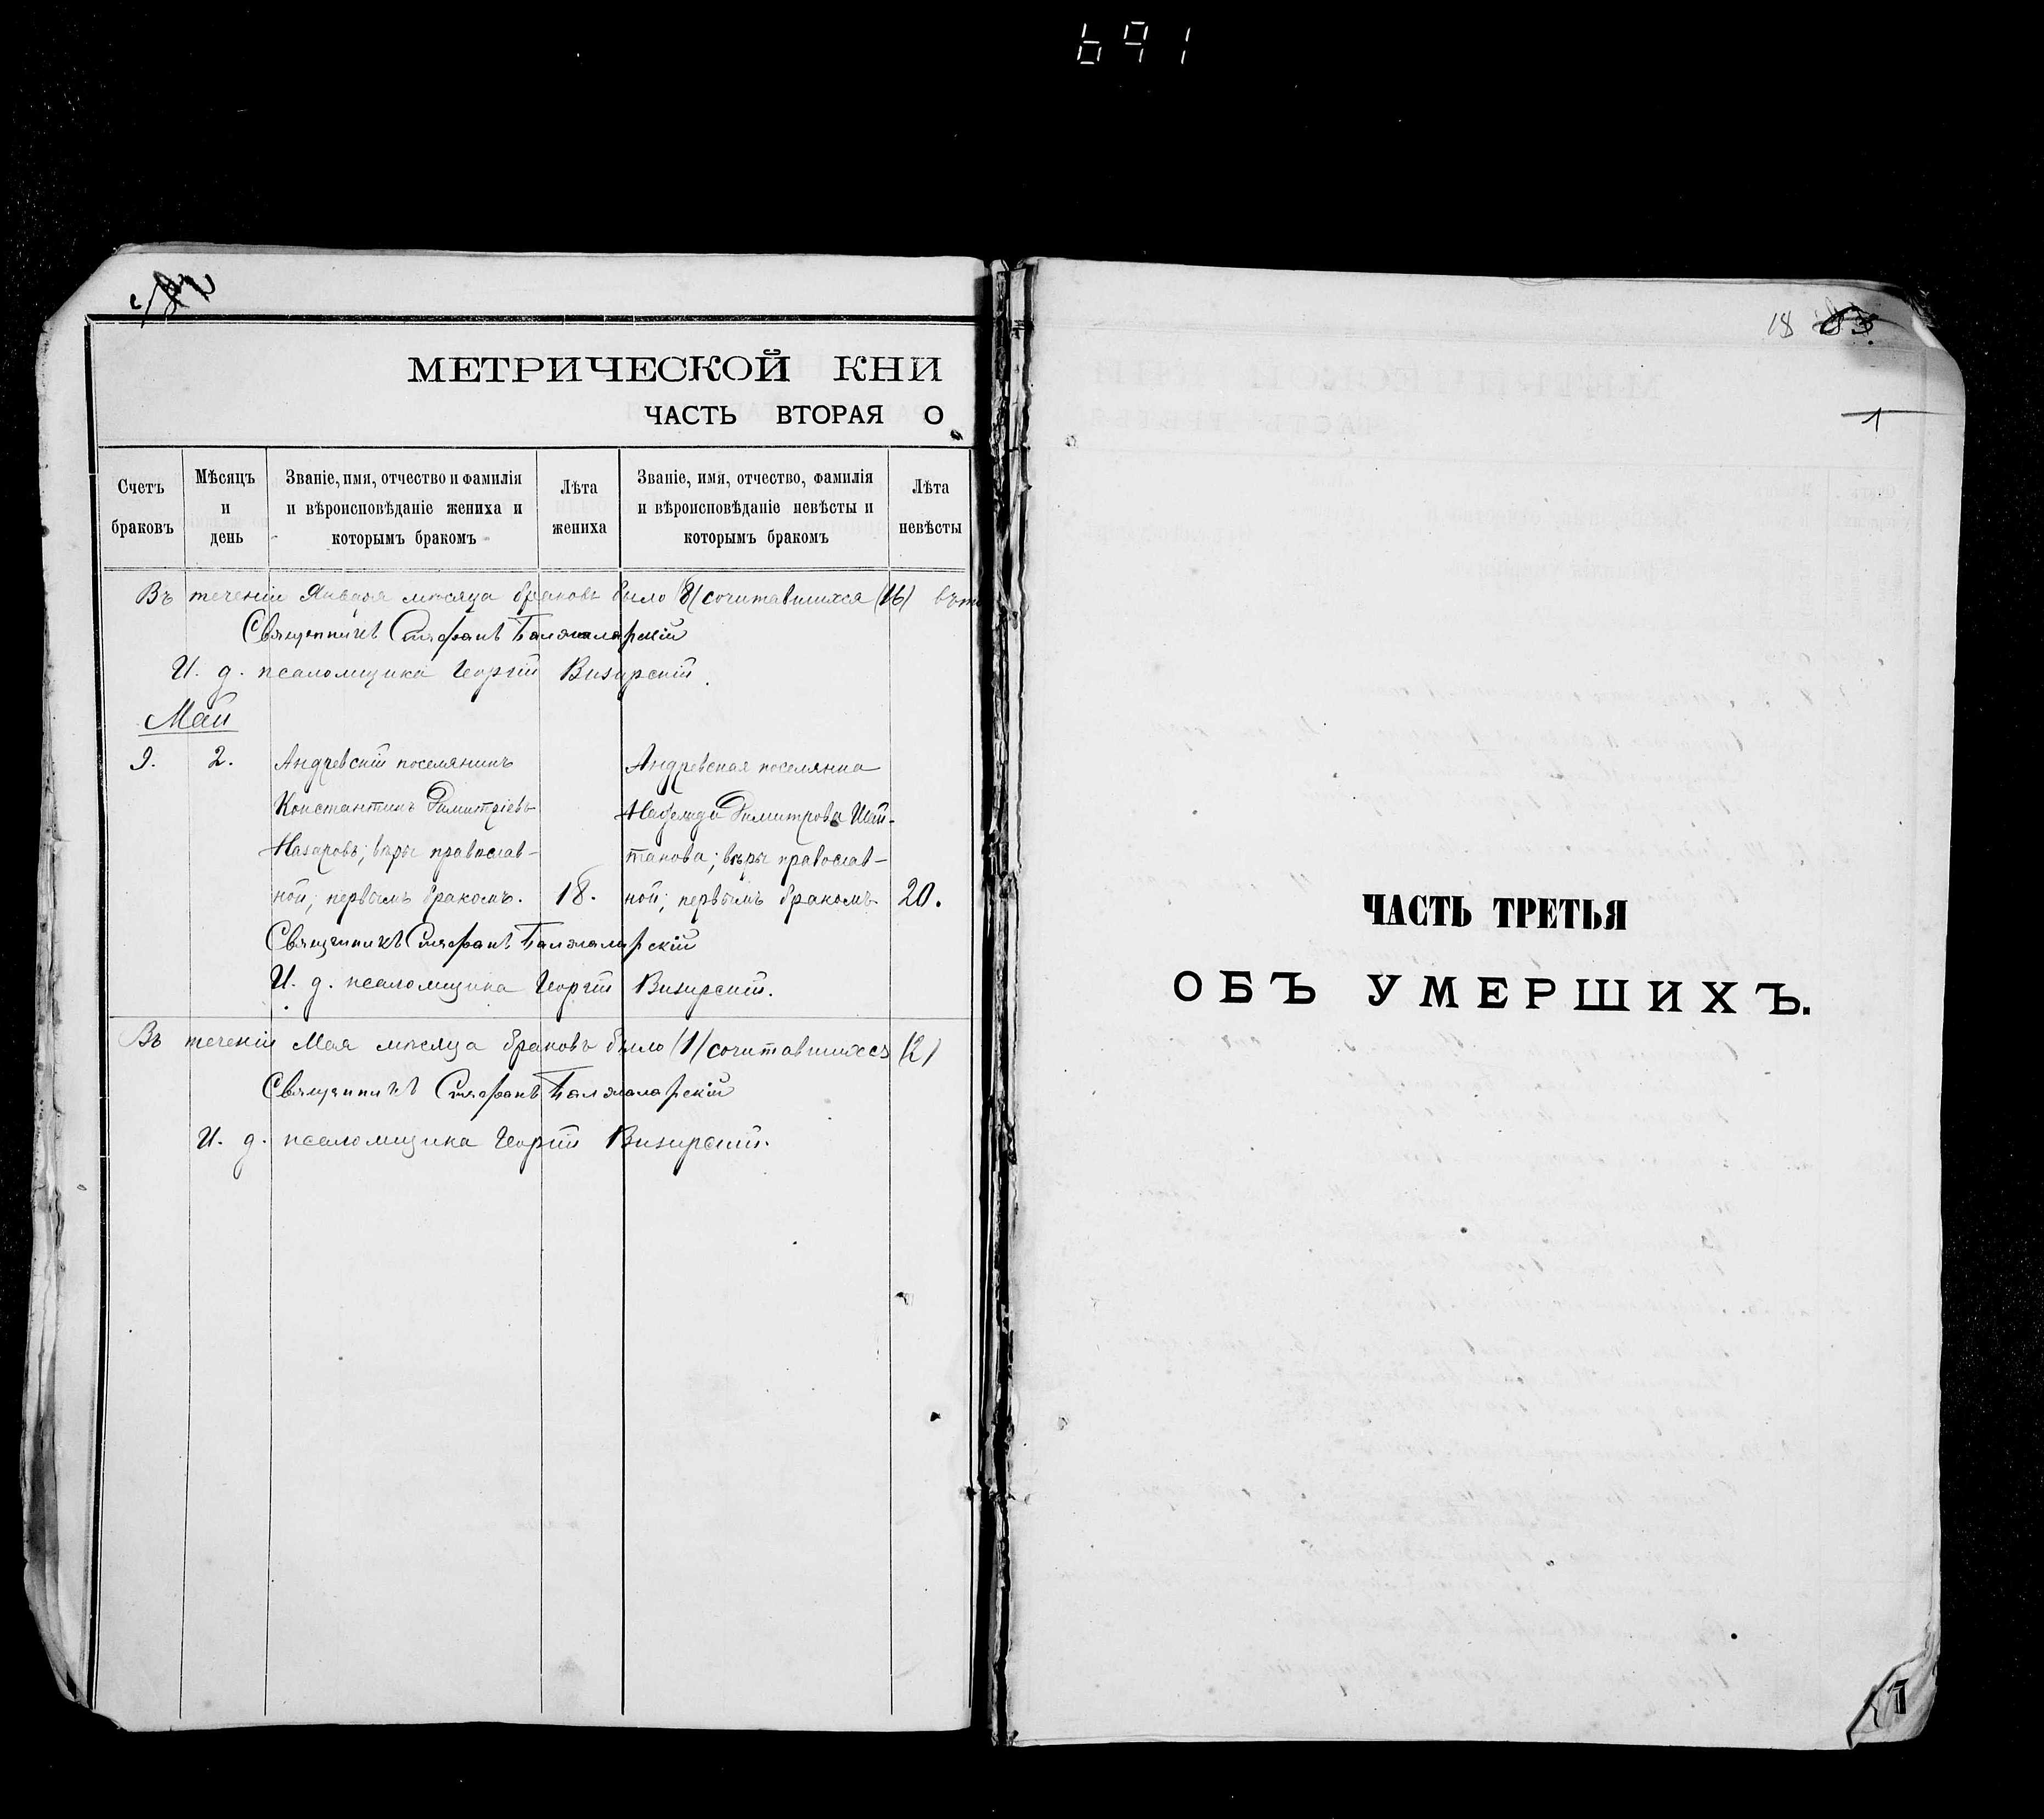 691
МЕТРИЧЕСКОЙ КНИ
ЧАСТЬ ВТОРАЯ О
Счетъ браковъ
Мѣсяцъ и день
Званіе, имя, отчество и фамилія и вѣроисповѣданіе жениха и которымъ бракомъ
Лѣта жениха
Званіе, имя, отчество, фамилія и вѣроисповѣданіе невѣсты и которымъ бракомъ
Лѣта невѣсты
Въ теченіи Января мѣсяца браковъ было (8) сочитавшихся (16)
Священникъ Стефанъ
И. д. псаломщика Георгій Визирскій.
Май
9. 2.
Андреевскій поселянинъ
Константинъ Димитріевъ
Назаровъ; вѣры православ-
ной; первымъ бракомъ. 18.
Андреевская поселянка
Надежда Димитрова Шай-
танова; вѣры православ-
ной; первымъ бракомъ 20.
Священникъ Стефанъ
И. д. псаломщика Георгій Визирскій.
Въ теченіи Мая мѣсяца браковъ было (1) сочитавшихся (2)
Священникъ Стефанъ
И. д. псаломщика Георгій Визирскій.
18
1
ЧАСТЬ ТРЕТЬЯ
ОБЪ УМЕРШИХЪ.